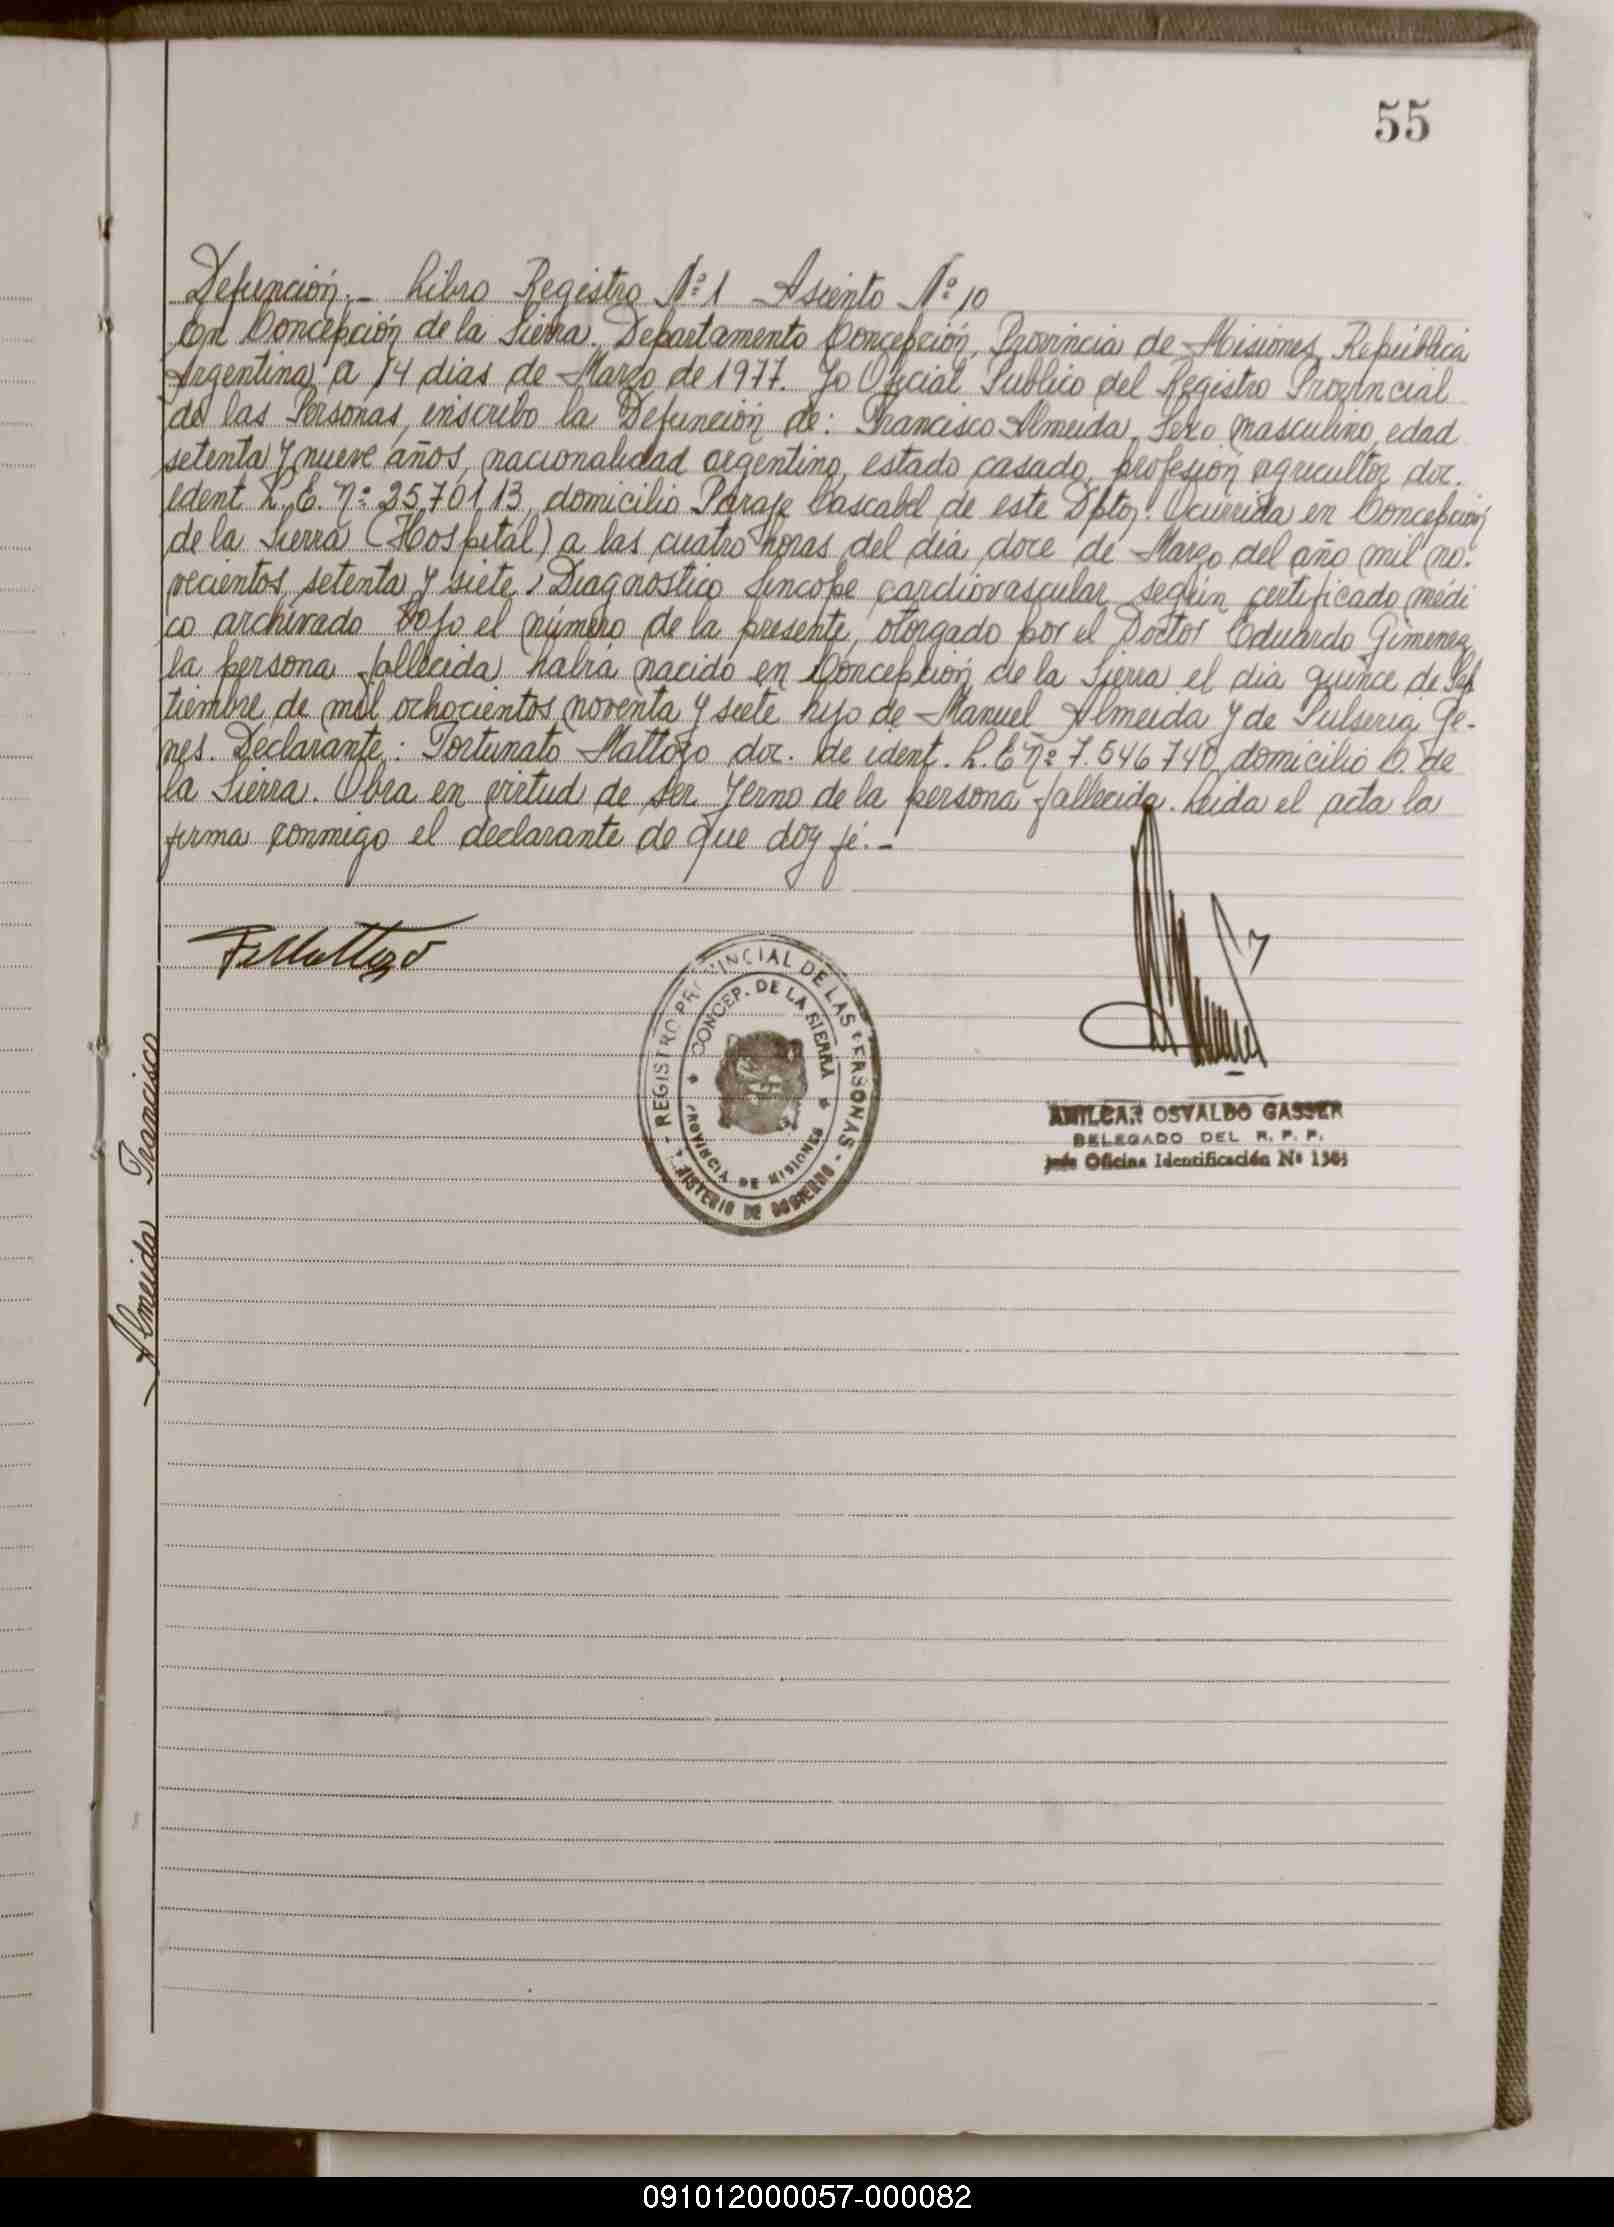 55
Defunción.- Libro Registro Nº 1 Asiento Nº 10
En Concepción de la Sierra, Departamento Concepción, Provincia de Misiones República
Argentina, a 14 dias de Marzo de 1977. Yo Oficial Publico del Registro Provincial
de las Personas, inscribo la Defunción de: Francisco Almeida, Sexo masculino, edad
setenta y nueve años, nacionalidad argentino, estado casado, profesión agricultor doc.
ident. L. E. nº 25.701.13, domicilio Paraje Cascabel de este Dpto. Ocurrida en Concepción
de la Sierra (Hospital) a las cuatro horas del dia doce de Marzo del año mil no-
vecientos setenta y siete. Diagnostico Sincope cardiovascular según certificado médi
co archivado bajo el número de la presente, otorgado por el Doctor Eduardo Gimenez
la persona fallecida habia nacido en Concepción de la Sierra el dia quince de Sep
tiembre de mil ochocientos noventa y siete hijo de Manuel Almeida y de Pulseria Ge-
nes. Declarante: Fortunato Mattozo doc. de ident. L.E nº 7.546 740, domicilio C. de
la Sierra. Obra en virtud de ser yerno de la persona fallecida. Leida el acta la
firma conmigo el declarante de que doy fé.-
F. Mattozo
REGISTRO PROVINCIAL DE LAS PERSONAS
CONCEP. DE LA SIERRA
PROVINCIA DE MISIONES
MINISTERIO DE GOBIERNO
AMILCAR OSVALDO GASSER
DELEGADO DEL R. P. P.
Jefe Oficina Identificación Nº 1303
Almeida Francisco
091012000057-000082